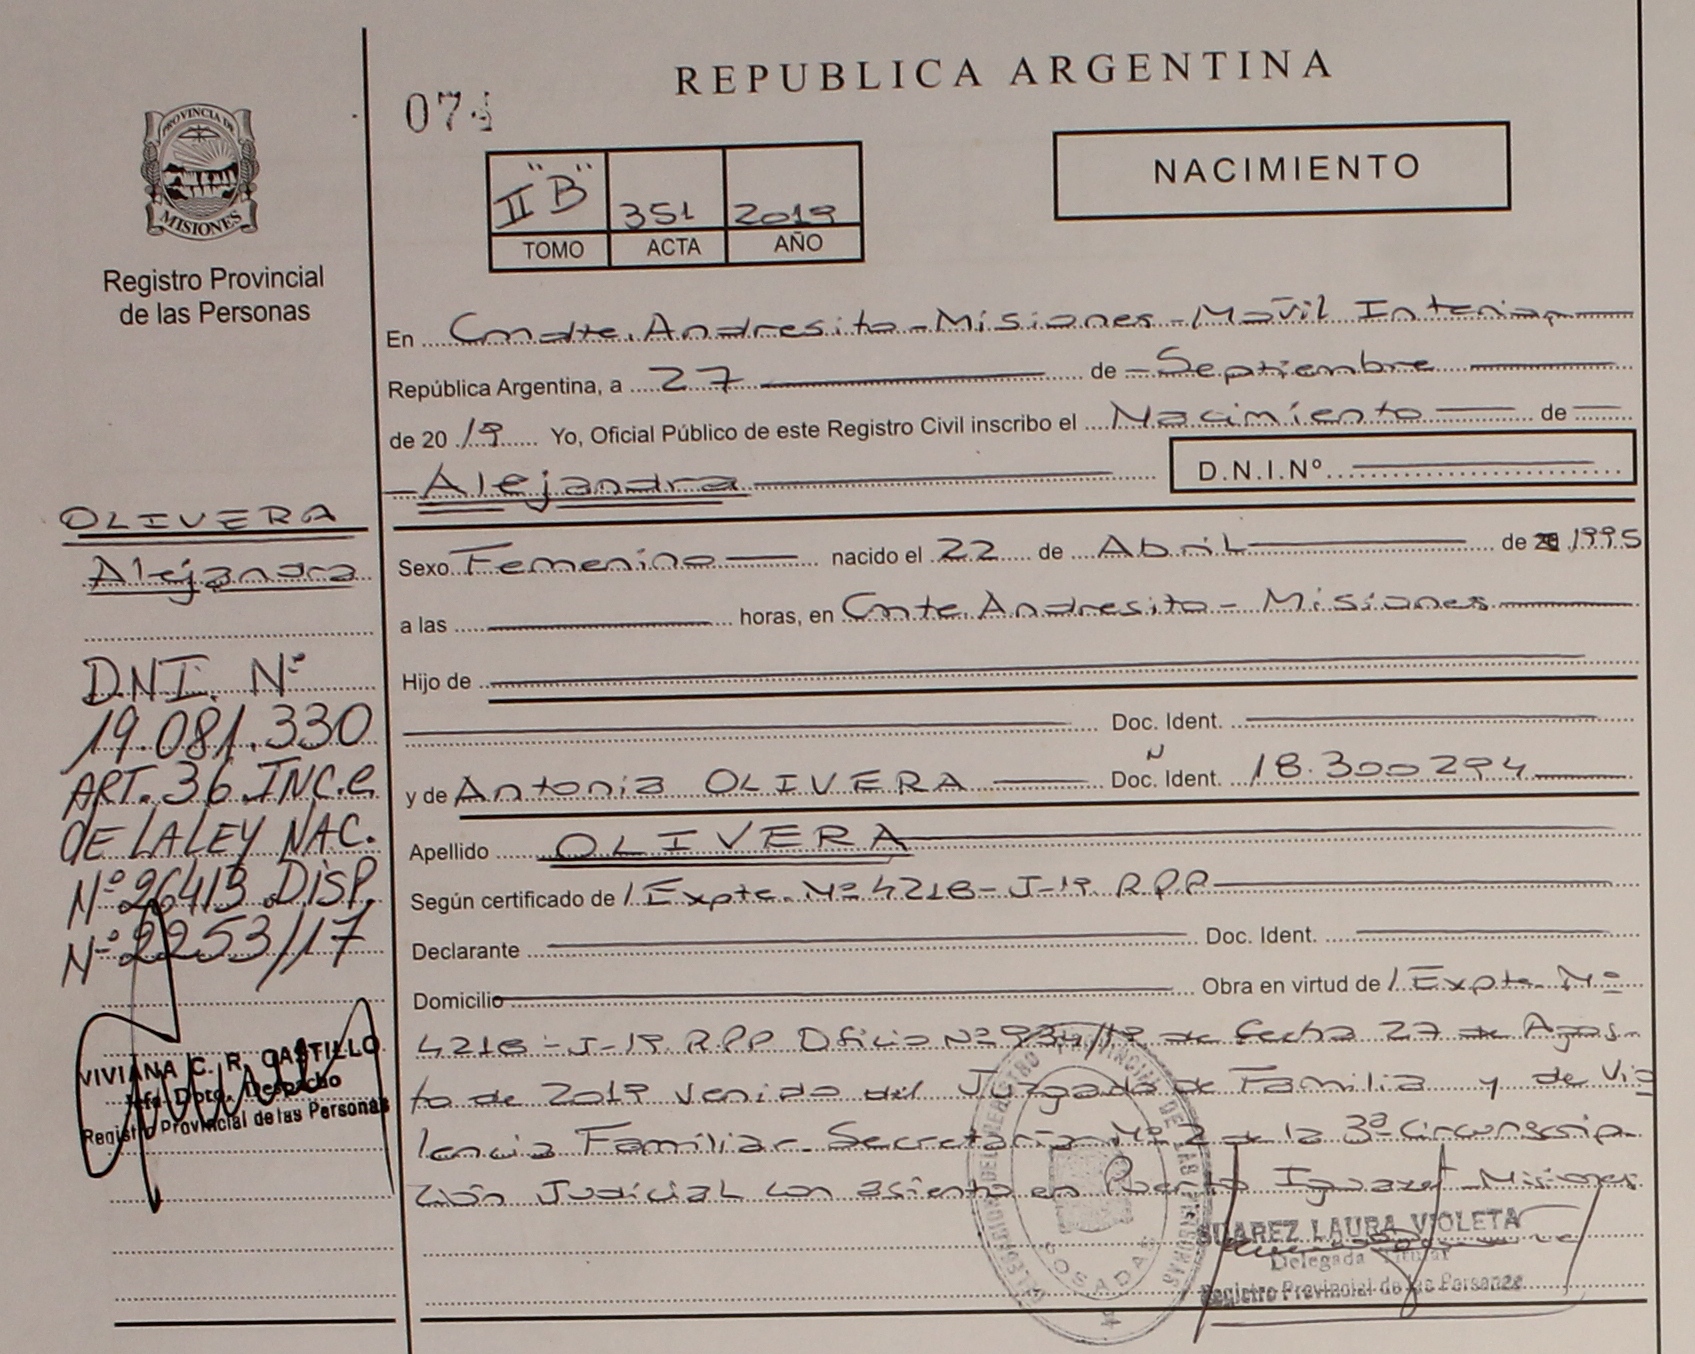 REPUBLICA ARGENTINA
074
PROVINCIA DE
MISIONES
Registro Provincial
de las Personas
II "B" 351 2019
TOMO ACTA AÑO
NACIMIENTO
En Cmdte. Andresito - Misiones - Movil Interior
República Argentina, a 27 de Septiembre
de 20 19 Yo, Oficial Público de este Registro Civil inscribo el Nacimiento de
Alejandra D.N.I.Nº
Sexo Femenino nacido el 22 de Abril de 1995
a las horas, en Cmte. Andresito - Misiones
Hijo de
Doc. Ident.
y de Antonia OLIVERA Doc. Ident. N 18.300294
Apellido OLIVERA
Según certificado de / Expte. Nº 4216-J-19 R.P.P
Declarante Doc. Ident.
Domicilio Obra en virtud de / Expte. Nº
4216-J-19 R.P.P Oficio Nº 934/19 de fecha 27 de Agos-
to de 2019 venido del Juzgado de Familia y de Vio
lencia Familiar - Secretaria Nº 2 de la 3ª Circunscrip-
ción Judicial con asiento en Puerto Iguazú - Misiones
SUAREZ LAURA VIOLETA
Delegada Titular
Registro Provincial de las Personas
POSADAS
OLIVERA
Alejandra
DNI. Nº
19.081.330
ART. 36 INC. C
DE LA LEY NAC.
Nº 26413 DISP.
Nº 2253/17
VIVIANA C. R. CASTILLO
Jefa Dpto. Despacho
Registro Provincial de las Personas